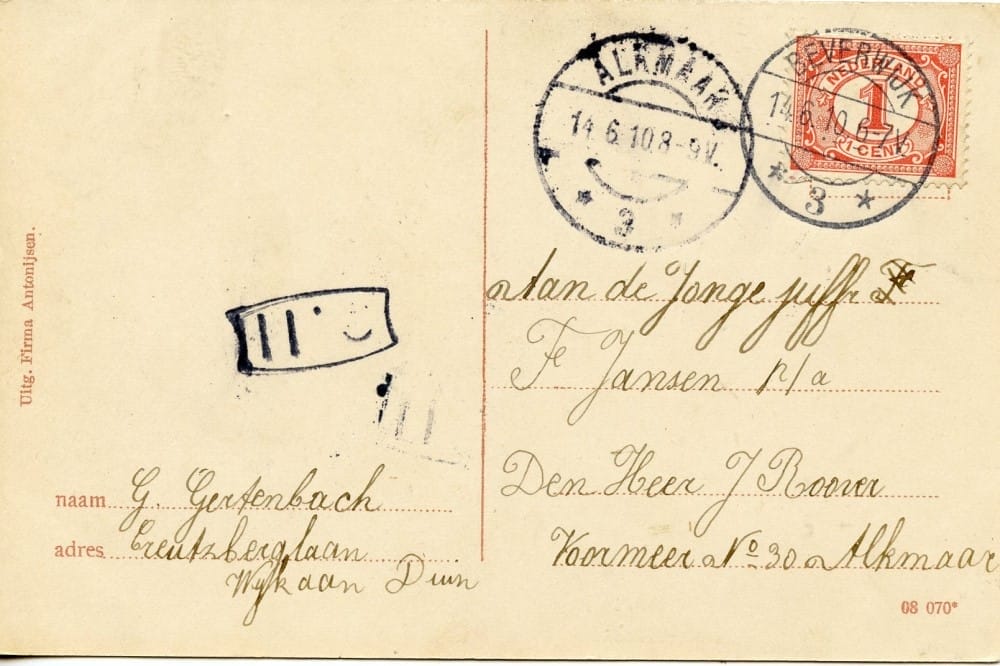 ALKMAAR
14.6.10.8-9V.
3
BEVERWIJK
14.6.10.6-7V.
3
NEDERLAND
1
1 CENT
Uitg. Firma Antonijsen.
Aan de Jonge juffr
F Jansen p/a
Den Heer J Roover
Voormeer No 30 Alkmaar
naam G. Gertenbach
adres Creutzberglaan
Wijk aan Duin
08 070*